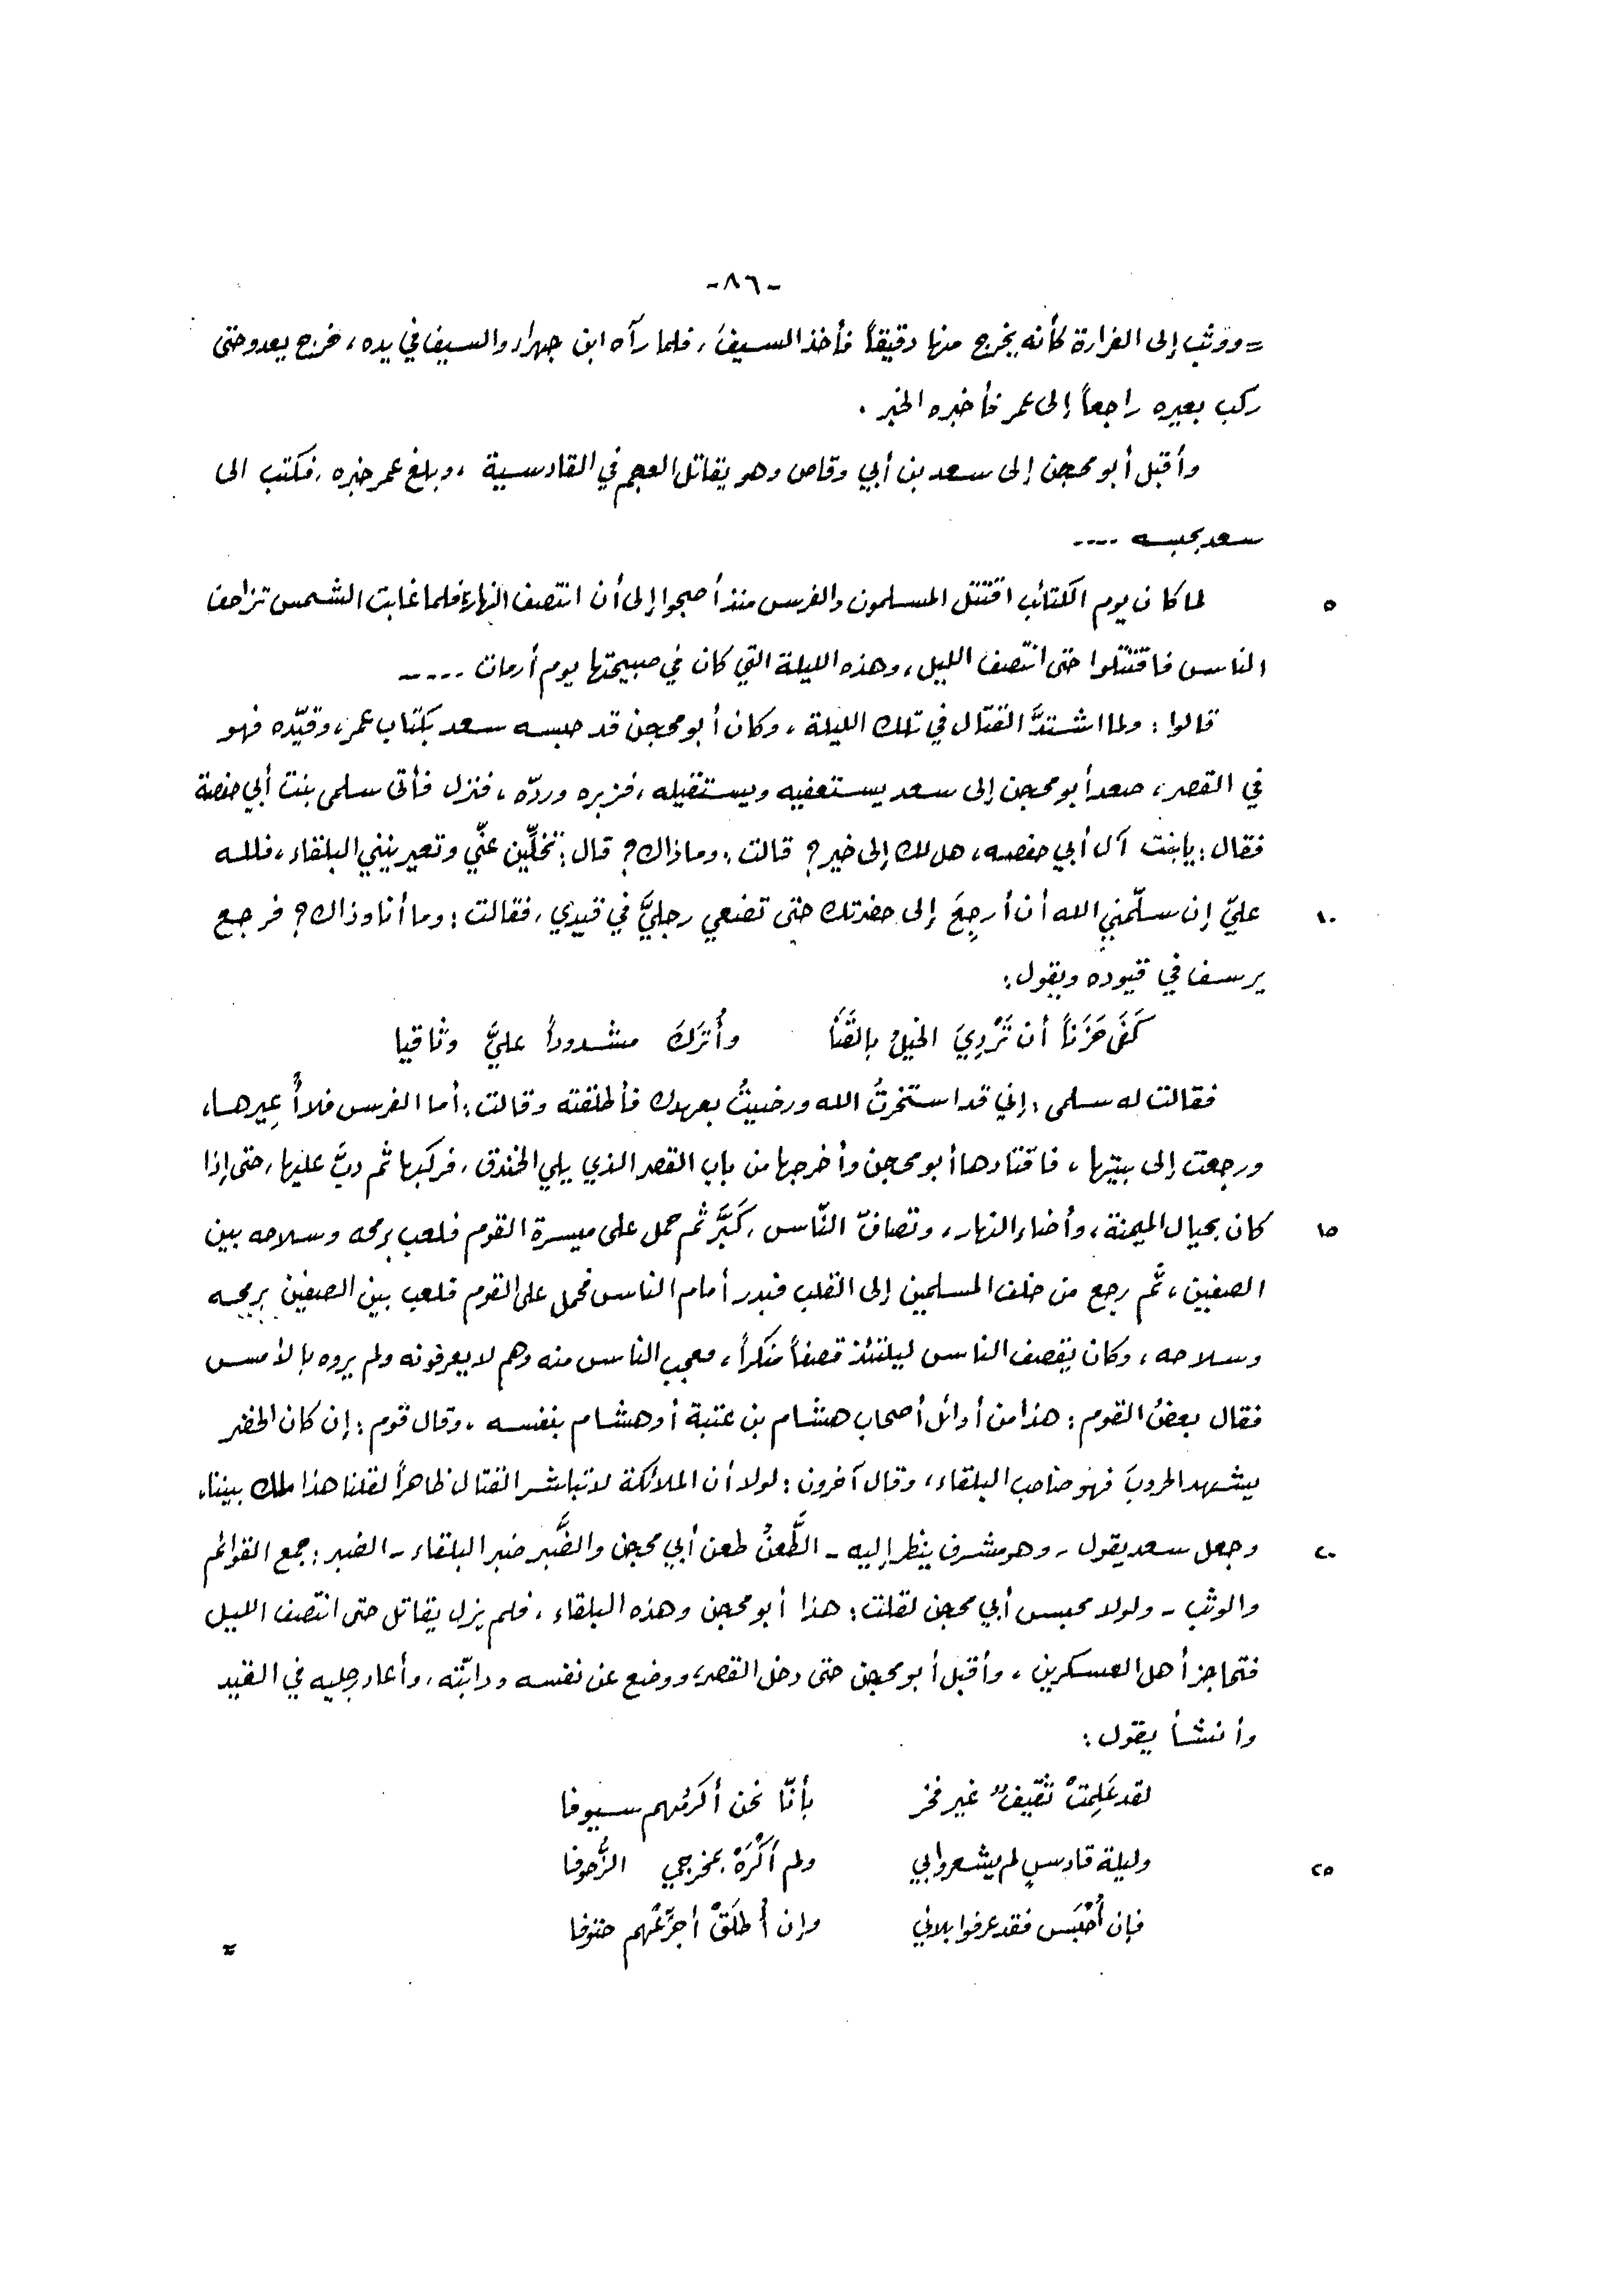 -٨٦-
= ووثب إلى الغرارة كأنه يخرج منها دقيقاً فأخذ السيفَ، فلما رآه ابن جهراء والسيف في يده، خرج يعدو حتى
ركب بعيره راجعاً إلى عمر فأخبره الخبر.
وأقبل أبو محجن إلى سعد بن أبي وقاص وهو يقاتل العجم في القادسية، وبلغ عمر خبره، فكتب الى
سعد بحبسه ....
٥ لما كان يوم الكتائب اقتتل المسلمون والفرس منذ أصبحوا إلى أن انتصف النهار، فلما غابت الشمس تزاحف
الناس فاقتتلوا حتى انتصف الليل، وهذه الليلة التي كان في صبيحتها يوم أرمات .....
قالوا: ولما اشتدَّ القتال في تلك الليلة، وكان أبو محجن قد حبسه سعد بكتاب عمر، وقيّده فهو
في القصر، صعد أبو محجن إلى سعد يستعفيه ويستقيله، فزبره وردّه، فنزل فأتى سلمى بنت أبي حفصة
فقال: يا بنت آل أبي حفصه، هل لك إلى خير؟ قالت: وما ذاك؟ قال: تخلِّين عنّي وتعيرينني البلقاء، فلله
١٠ عليّ إن سلّمني الله أن أرجعَ إلى حضرتك حتى تضعي رجليَّ في قيدي، فقالت: وما أنا وذاك؟ فرجع
يرسف في قيوده ويقول:
كَفَى حَزَناً أن تَرْدِيَ الخيلُ بالقَنَا وأُترَكَ مشدوداً عليَّ وثاقيا
فقالت له سلمى: إني قد استخرتُ الله ورضيتُ بعهدك فأطلقته وقالت: أما الفرس فلا أُعِيرها،
ورجعت إلى بيتها، فاقتادها أبو محجن وأخرجها من باب القصر الذي يلي الخندق، فركبها ثم دبّ عليها، حتى إذا
١٥ كان بحيال الميمنة، وأضاء النهار، وتصافّ النّاس، كَبَّر ثم حمل على ميسرة القوم فلعب برمحه وسلاحه بين
الصفين، ثُم رجع من خلف المسلمين إلى القلب فبدر أمام الناس فحمل على القوم فلعب بين الصفين برمحه
وسلاحه، وكان يقصف الناس ليلتئذ قصفاً منكراً، فعجب الناس منه وهم لا يعرفونه ولم يروه بالأمس
فقال بعضُ القوم: هذا من أوائل أصحاب هشام بن عتبة أو هشام بنفسه، وقال قوم: إن كان الخضر
يشهد الحروبَ فهو صاحب البلقاء، وقال آخرون: لولا أن الملائكة لا تباشر القتال ظاهراً لقلنا هذا ملك بيننا،
٢٠ وجعل سعد يقول - وهو مشرف ينظر إليه - الطَّعنُ طعن أبي محجن والضَّبر ضبر البلقاء - الضبر: جمع القوائم
والوثب - ولولا محبس أبي محجن لقلت: هذا أبو محجن وهذه البلقاء، فلم يزل يقاتل حتى انتصف الليل
فتحاجز أهل العسكرين، وأقبل أبو محجن حتى دخل القصر، ووضع عن نفسه ودابّته، وأعاد رجليه في القيد
وأنشأ يقول:
لقد عَلِمتْ ثقيفٌ غير فخر بأنّا نحن أكرمُهم سيوفا
٢٥ وليلة قادسٍ لم يشعروا بي ولم أَكْرَهْ بمخرجي الزُّحوفا
فإن أُحْبَس فقد عرفوا بلائي وإن أُطلَقْ أجرِّعْهم حتوفا
=